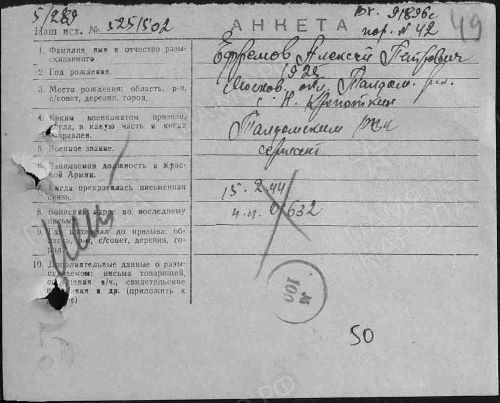 5/289
Наш исх. № 525/502
АНКЕТА
Вх. 91896с
пор. № 42
49
1. Фамилия, имя и отчество разыскиваемого
Ефремов Алексей Петрович
2. Год рождения.
3. Место рождения: область, р-н, с/совет, деревня, город.
Москов. обл. Талдом. р-н
с. Н. Кропоткин
4. Каким военкоматом призван, когда, в какую часть и когда направлен.
Талдомским
5. Военное звание.
сержант
6. Занимаемая должность в Красной Армии.
7. Когда прекратилась письменная связь.
15.2.44
8. Воинский адрес по последнему письму.
п.п. 01632
9. Где проживал до призыва: область, р-н, с/совет, деревня, город
10. Дополнительные данные о разыскиваемом: письма товарищей, сообщения в/ч., свидетельские показания и др. (приложить к
100
50